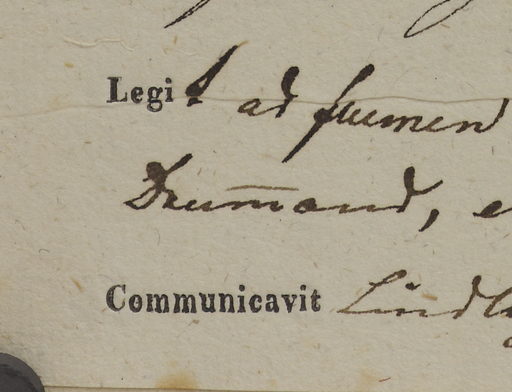 Legit ad flumen
Drumm̄ond,
Communicavit Lindl